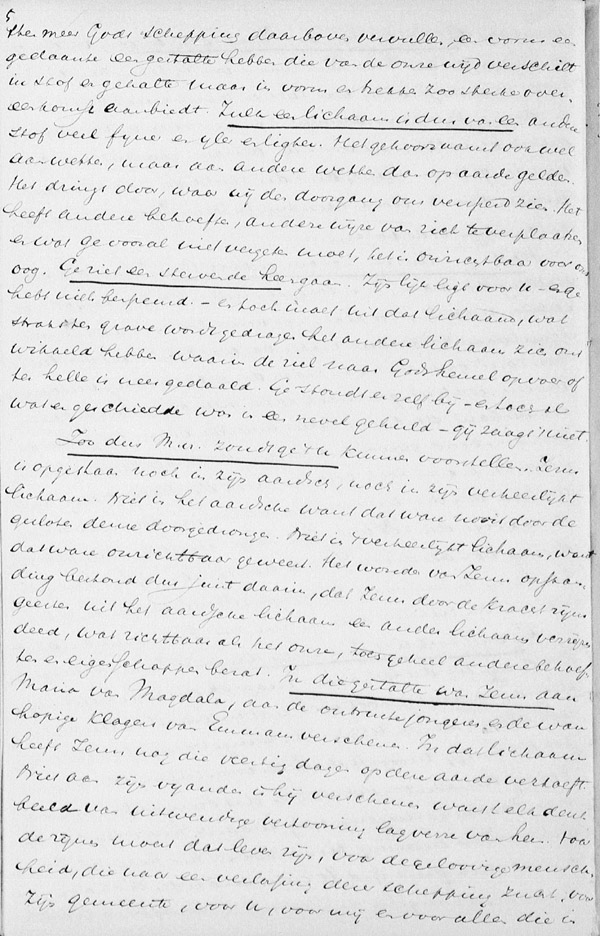 5
sten meer Gods schepping daarboven vervullen, een vorm een
gedaante een gestalte hebben die van de onze wijd verschilt
in stof en gehalte maar in vorm en trekken zoo sterke over-
eenkomst aanbiedt. Zulk een lichaam is dus van een andere
stof veel fyner en yler en ligter. Het gehoorzaamt ook wel
aan wetten, maar aan andere wetten dan op aarde gelden.
Het dringt door, waar wij den doorgang ons versperd zien. Het
heeft andere behoeften, andere wijze van zich te verplaatsen
en wat ge vooral niet vergeten moet, het is onzichtbaar voor ons
oog. Ge ziet een stervende heengaan. Zijn lijk ligt voor u - en ge
hebt niets bespeurd - en toch moet uit dat lichaam, wat
straks ten grave wordt gedragen het andere lichaam zich ont
wikkeld hebben waarin de ziel naar Gods hemel opvoer of
ter helle is neergedaald. Ge stondt er zelf bij - en toch al
wat er geschiedde was in een nevel gehuld - gij zaagt 't niet.
Zoo dus M. H. zoudt ge 't u kunnen voorstellen. Jezus
is opgestaan noch in zijn aardsch, noch in zijn verheerlijkt
lichaam. Niet in het aardsche want dat ware nooit door de
gesloten deuren doorgedrongen. Niet in 't verheerlijkt lichaam, want
dat ware onzichtbaar geweest. Het wonder van Jezus opstan-
ding bestond dus juist daarin, dat Jezus door de kracht zijns
geestes uit het aardsche lichaam een ander lichaam verrijzen
deed, wat zichtbaar als het onze, toch geheel andere behoef-
ten en eigenschappen bezat. In die gestalte was Jezus aan
Maria van Magdala, aan de ontruste jongeren en de wan
hopige klagers van Emmaus verschenen. In dat lichaam
heeft Jezus nog die veertig dagen op den aarde vertoefd.
Niet aan zijn vyanden is hij verschenen want elk denk
beeld van uitwendige vertooning lag verre van hem. Voor
de zijnen moest dat leven zijn, voor de geloovige mensch-
heid, die naar een verlossing der schepping zucht, voor
zijn gemeente, voor u, voor mij en voor allen die in